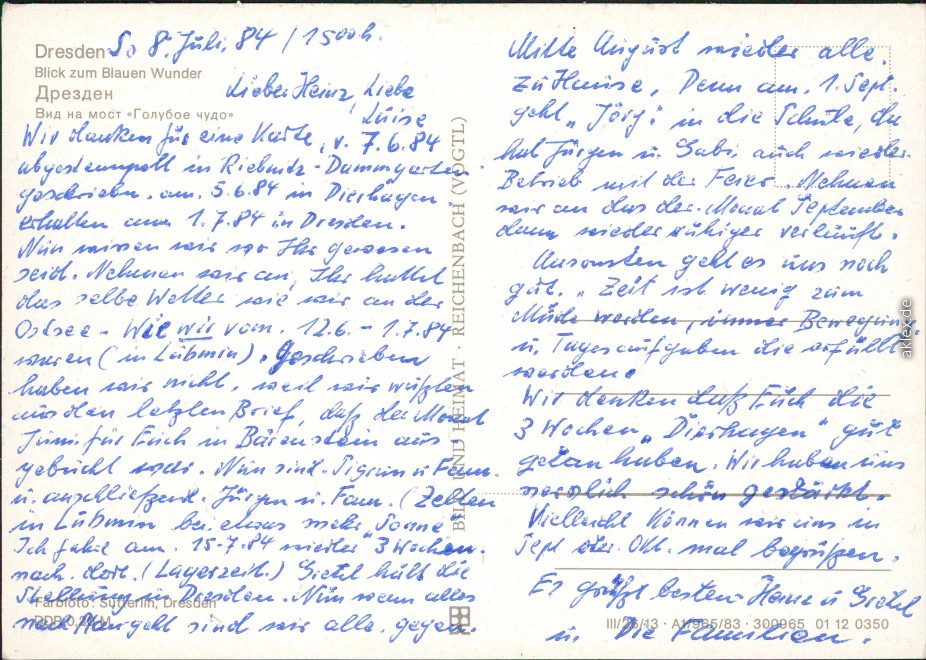 Dresden So 8. Juli. 84 / 1500 h.
Blick zum Blauen Wunder
Дрезден
Вид на мост «Голубое чудо»
Lieber Heinz, Liebe
Luise
Wir danken für eine Karte, v. 7.6.84
abgestempelt in Riebnitz-Dammgarten.
geschrieben. am. 5.6.84 in Dierhagen.
erhalten am 1.7.84 in Dresden.
Nun wissen wir wo Ihr gewesen
seid. Nehmen wir an, Ihr hattet
das selbe Wetter wie wir an der
Ostsee - Wie wir vom. 12.6. - 1.7.84
waren (in Lubmin). Geschrieben
haben wir nicht, weil wir wußten
aus den letzten Brief, daß der Monat
Juni. für Euch in Bärenstein aus
gebucht war. Nun sind. Sigrun u Fam.
u. anschließend. Jürgen u. Fam. (Zelten
in Lubmin bei etwas mehr "Sonne"
Ich fahre am. 15.7.84 wieder 3 Wochen.
nach. dort. (Lagerzeit.) Gretel hält die
Stellung in Dresden. Nun wenn alles
nach Plan geht sind wir alle. gegen
Farbfoto: Sütterlin, Dresden
BILD UND HEIMAT · REICHENBACH (VOGTL)
Mitte August wieder alle.
zu Hause, Denn am. 1. Sept.
geht „Jörg" in die Schule, da
hat Jürgen u. Gabi auch wieder
Betrieb mit der Feier. Nehmen
wir an das der. Monat September
dann wieder ruhiger verläuft.
Ansonsten geht es uns noch
gut. „Zeit ist wenig zum
Müde werden, immer Bewegung,
u. Tagesaufgaben die erfüllt
werden.
Wir denken daß Euch die
3 Wochen „Dierhagen" gut
getan haben. Wir haben uns
schön gestärkt.
Vielleicht können wir uns in
Sept oder. Okt. mal begrüßen.
Es grüßt bestens Heinz u Gretel
u. Die Familien.
III/26/13 · A1/965/83 · 300965 01 12 0350
aklex.de